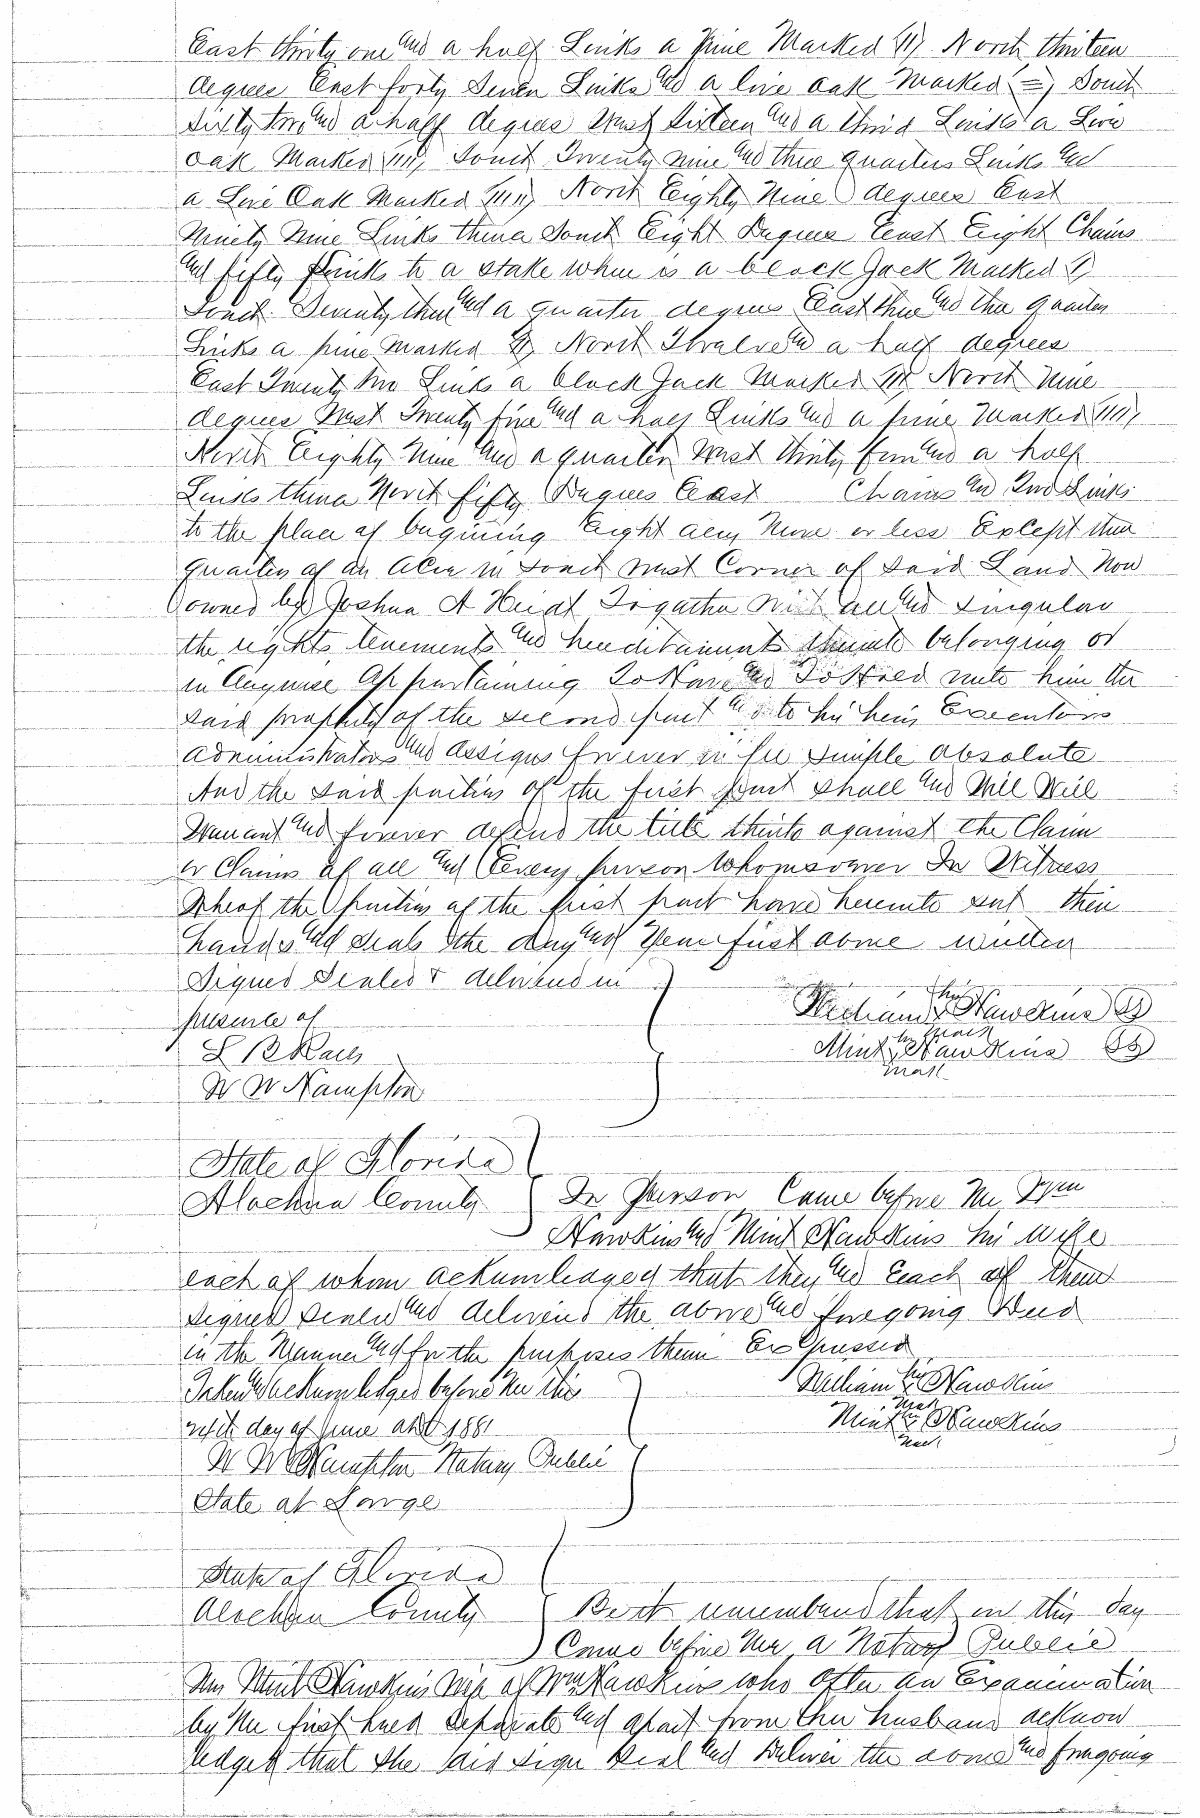 East thirty one and a half Links a pine Marked (11) North thirteen
degrees East forty Seven Links and a live oak Marked (=) South
sixty two and a half degrees West Sixteen and a third Links a Live
oak Marked (1111) South Twenty nine and three quarters Links and
a Live Oak Marked North Eighty Nine degrees East
Ninety Nine Links thence South Eight Degrees East Eight Chains
and fifty Links to a stake where is a black Jack Marked (1)
South Seventy three and a quarter degrees East three and three quarters
Links a pine Marked North Twelve and a half degrees
East Twenty two Links a black Jack Marked North Nine
degrees West Twenty five and a half Links and a pine Marked (1111)
North Eighty Nine and a quarter West thirty four and a half
Links thence North fifty Degrees East Chains and Two Links
to the place of begining Eight acres More or less Except three
quarters of an Acre in South West Corner of Said Land Now
owned by Joshua A Togather with all and singular
the rights tenements and hereditaments thereunto belonging or
in Anywise Appertaining To Have and To Hold unto him the
said property of the second part and to his heirs Executors
Administrators and Assigns forever in fee simple absolute
And the said parties of the first part shall and Will Will
Warrant and forever defend the title thereto against the Claim
or Claims of all and Every person whomsoever In Witness
Whereof the parties of the first part have hereunto set their
hands and seals the day and Year first above written
Signed Sealed & delivered in
presence of
L B
W W Hampton
his
William x Hawkins
mark
her
Mint x Hawkins
mark
State of Florida
Alachua County
In Person Came before Me Wm
Hawkins and Mint Hawkins his Wife
each of whom acknowledged that they and Each of them
signed sealed and delivered the above and foregoing Deed
in the Manner and for the purposes therein Expressed
Taken & acknowledged before Me this
day of June AD 1881
W W Hampton Notary Public
State at Large
his
William x Hawkins
mark
her
Mint x Hawkins
mark
State of Florida
Alachua County
Be it remembered that on this day
Came before Me a Notary Public
Mrs Mint Hawkins Wife of Wm Hawkins who after an Examination
by Me first had separate and apart from her husband acknow
ledged that She did sign Seal and Deliver the above and foregoing